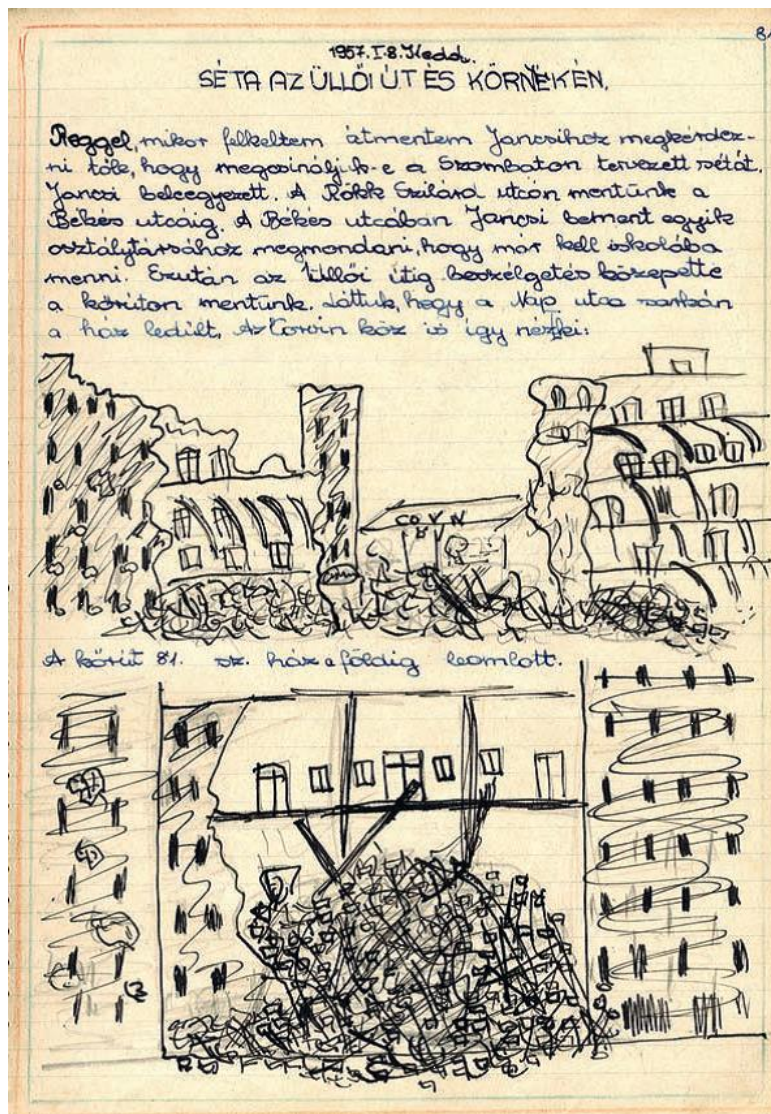 8
1957. I. 8. Kedd.
SÉTA AZ ÜLLŐI ÚT ÉS KÖRNÉKÉN.
Reggel, mikor felkeltem átmentem Jancsihoz megkérdez-
ni tőle, hogy megcsináljuk-e a Szombaton tervezett sétát.
Jancsi beleegyezett. A Rökk Szilárd utcán mentünk a
Békés utcáig. A Békés utcában Jancsi bement egyik
osztálytársához megmondani, hogy már kell iskolába
menni. Ezután az Üllői útig beszélgetés közepette
a körúton mentünk. Láttuk, hogy a Nap utca sarkán
a ház ledűlt, Az Corvin köz is így néz ki:
CO V N
A körút 81. sz. ház a földig leomlott.